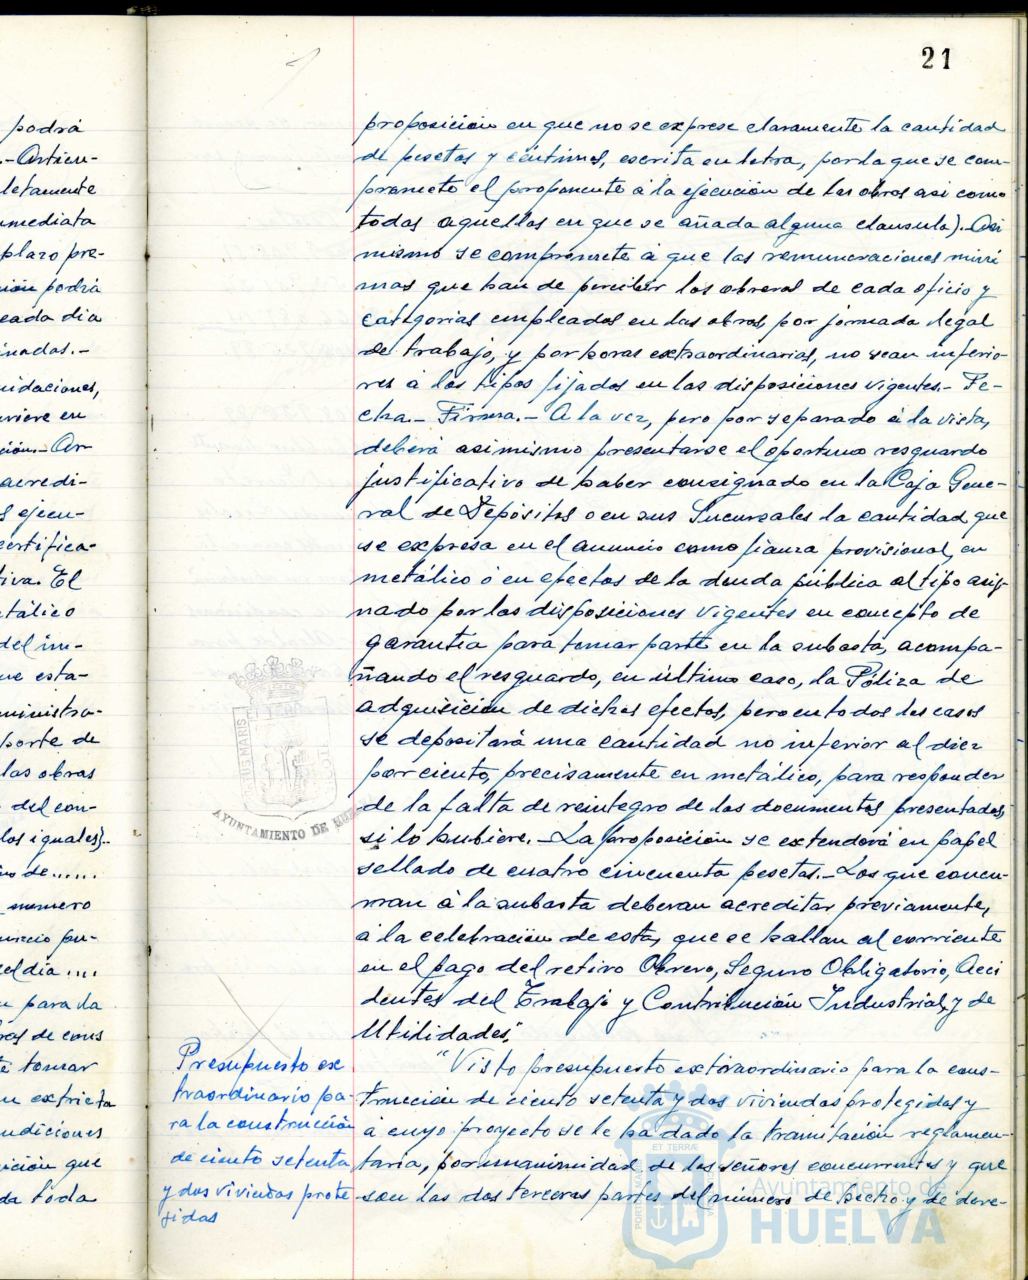 21
podrá
.- Artícu-
letamente
nmediata
plazo pre-
podrá
cada dia
inadas.-
uidaciones,
uviere en
ción.- Ar-
acredi-
s ejecu-
certifica-
tiva. El
etálico
del im-
ue esta-
ministra-
porte de
las obras
del con-
los iguales).-
de......
numero
uncio pu-
el dia ....
para la
ras de cons
tomar
n extricta
ndiciones
ición que
da toda
proposición en que no se exprese claramente la cantidad
de pesetas y céntimos, escrita en letra, por la que se com-
promete el proponente á la ejecución de las obras asi como
todas aquellas en que se añada alguna clausula).- Asi
mismo se compromete á que las remuneraciones míni
mas que han de percibir los obreros de cada oficio y
categorias empleados en las obras, por jornada legal
de trabajo, y por horas extraordinarias, no sean inferio-
res á los tipos fijados en las disposiciones vigentes.- Fe-
cha.- Firma.- A la vez, pero por separado á la vista,
deberá asimismo presentarse el oportuno resguardo
justificativo de haber consignado en la Caja Gene-
ral de Depósitos o en sus Sucursales la cantidad que
se expresa en el anuncio como fianza provisional, en
metálico ó en efectos de la deuda pública al tipo asig-
nado por las disposiciones vigentes en concepto de
garantía para tomar parte en la subasta, acompa-
ñando el resguardo, en último caso, la Póliza de
adquisición de dichos efectos, pero en todos los casos
se depositará una cantidad no inferior al diez
por ciento, precisamente en metálico, para responder
de la falta de reintegro de los documentos presentados,
si lo hubiere.- La proposición se extenderá en papel
sellado de cuatro cincuenta pesetas.- Los que concu-
rran á la subasta deberan acreditar previamente,
á la celebración de esta, que se hallan al corriente
en el pago del retiro Obrero, Seguro Obligatorio, Acci
dentes del Trabajo y Contribución Industrial, y de
Utilidades."
Presupuesto ex
traordinario pa-
ra la construcción
de ciento setenta
y dos viviendas prote
gidas
"Visto presupuesto extraordinario para la cons-
trucción de ciento setenta y dos viviendas protegidas y
á cuyo proyecto se le ha dado la tramitación reglamen-
taria, por unanimidad de los señores concurrentes y que
son las dos terceras partes del número de hecho y de dere-
AYUNTAMIENTO DE
Ayuntamiento de
HUELVA